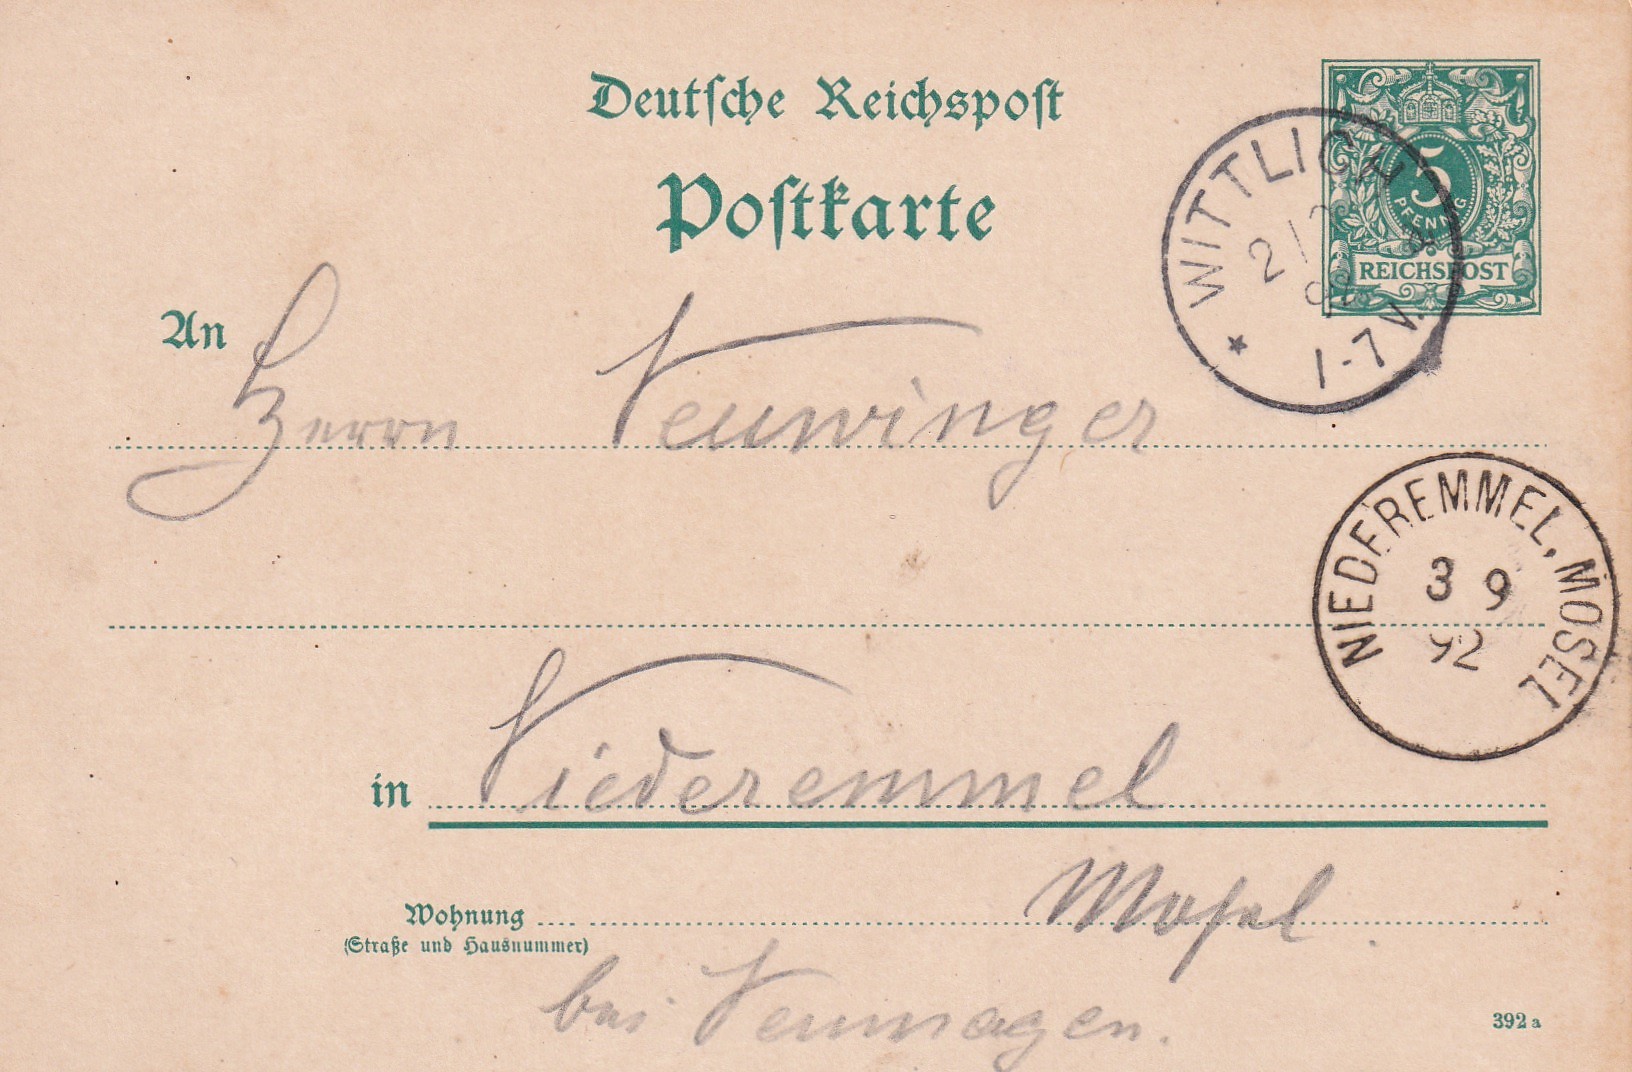 Deutsche Reichspost
Postkarte
5
PFENNIG
REICHSPOST
WITTLICH
2
92
1-7 V.
An
Herrn Neuwinger
NIEDEREMMEL, MOSEL
3 9
92
in Niederemmel
Mosel.
Wohnung
(Straße und Hausnummer)
bei Neumagen.
392 a